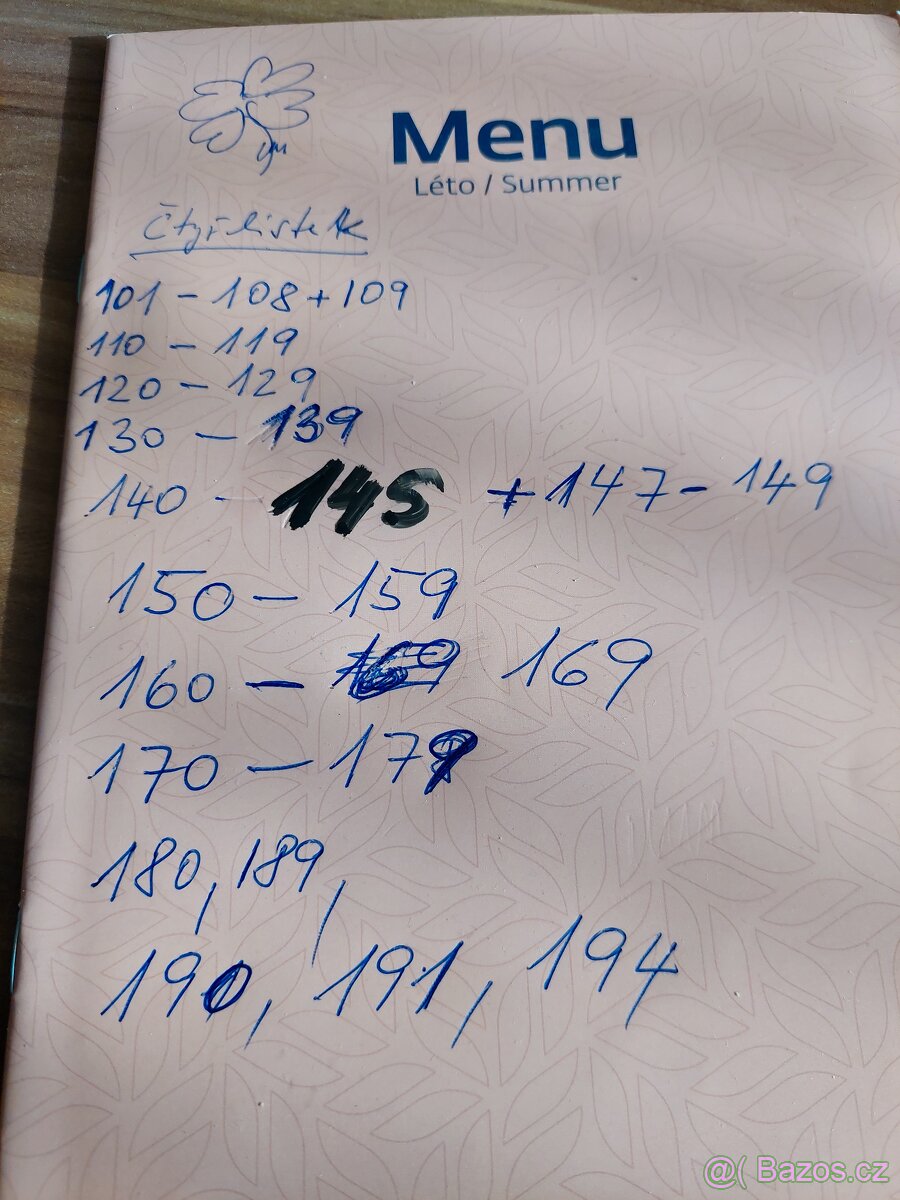 Menu
Léto / Summer
Čtyřlístek
101 - 108 + 109
110 - 119
120 - 129
130 - 139
140 - 145 + 147 - 149
150 - 159
160 - 169
170 - 179
180, 189,
190, 191, 194
@( Bazos.cz